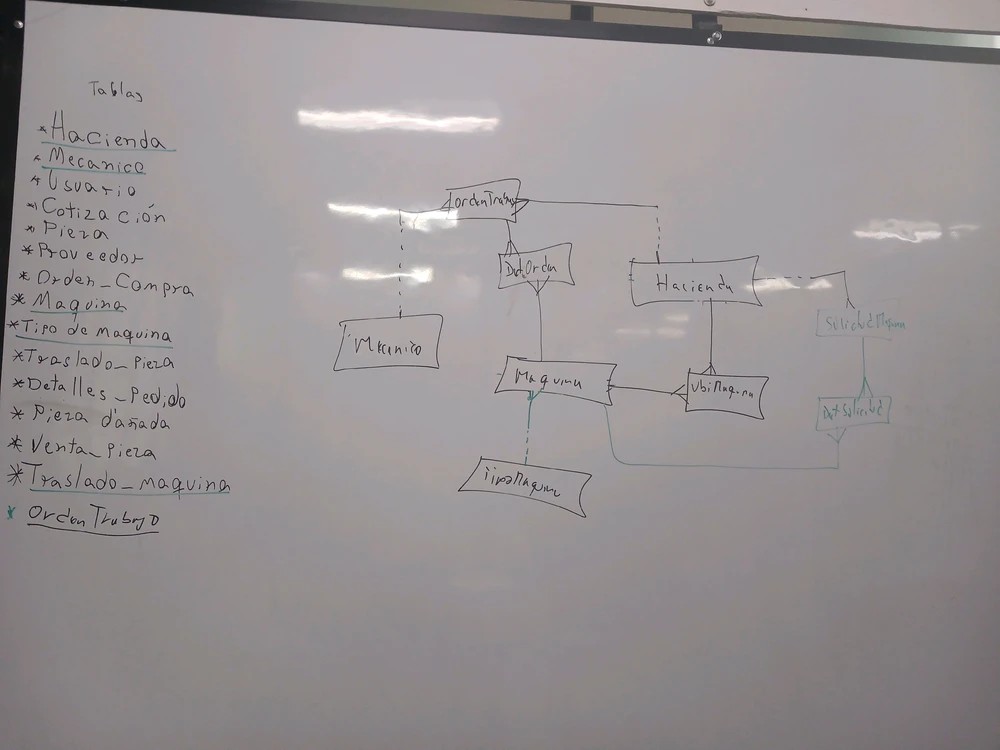 Tablas
* Hacienda
* Mecanico
* Usuario
* Cotización
* Pieza
* Proveedor
* Orden_Compra
* Maquina
* Tipo de maquina
* Traslado_Pieza
* Detalles_Pedido
* Pieza dañada
* Venta_Pieza
* Traslado_maquina
* Orden Trabajo
OrdenTrabajo
DetOrden
Hacienda
Mecanico
Maquina
UbiMaquina
TipoMaquina
SolicitudMaquina
DetSolicitud